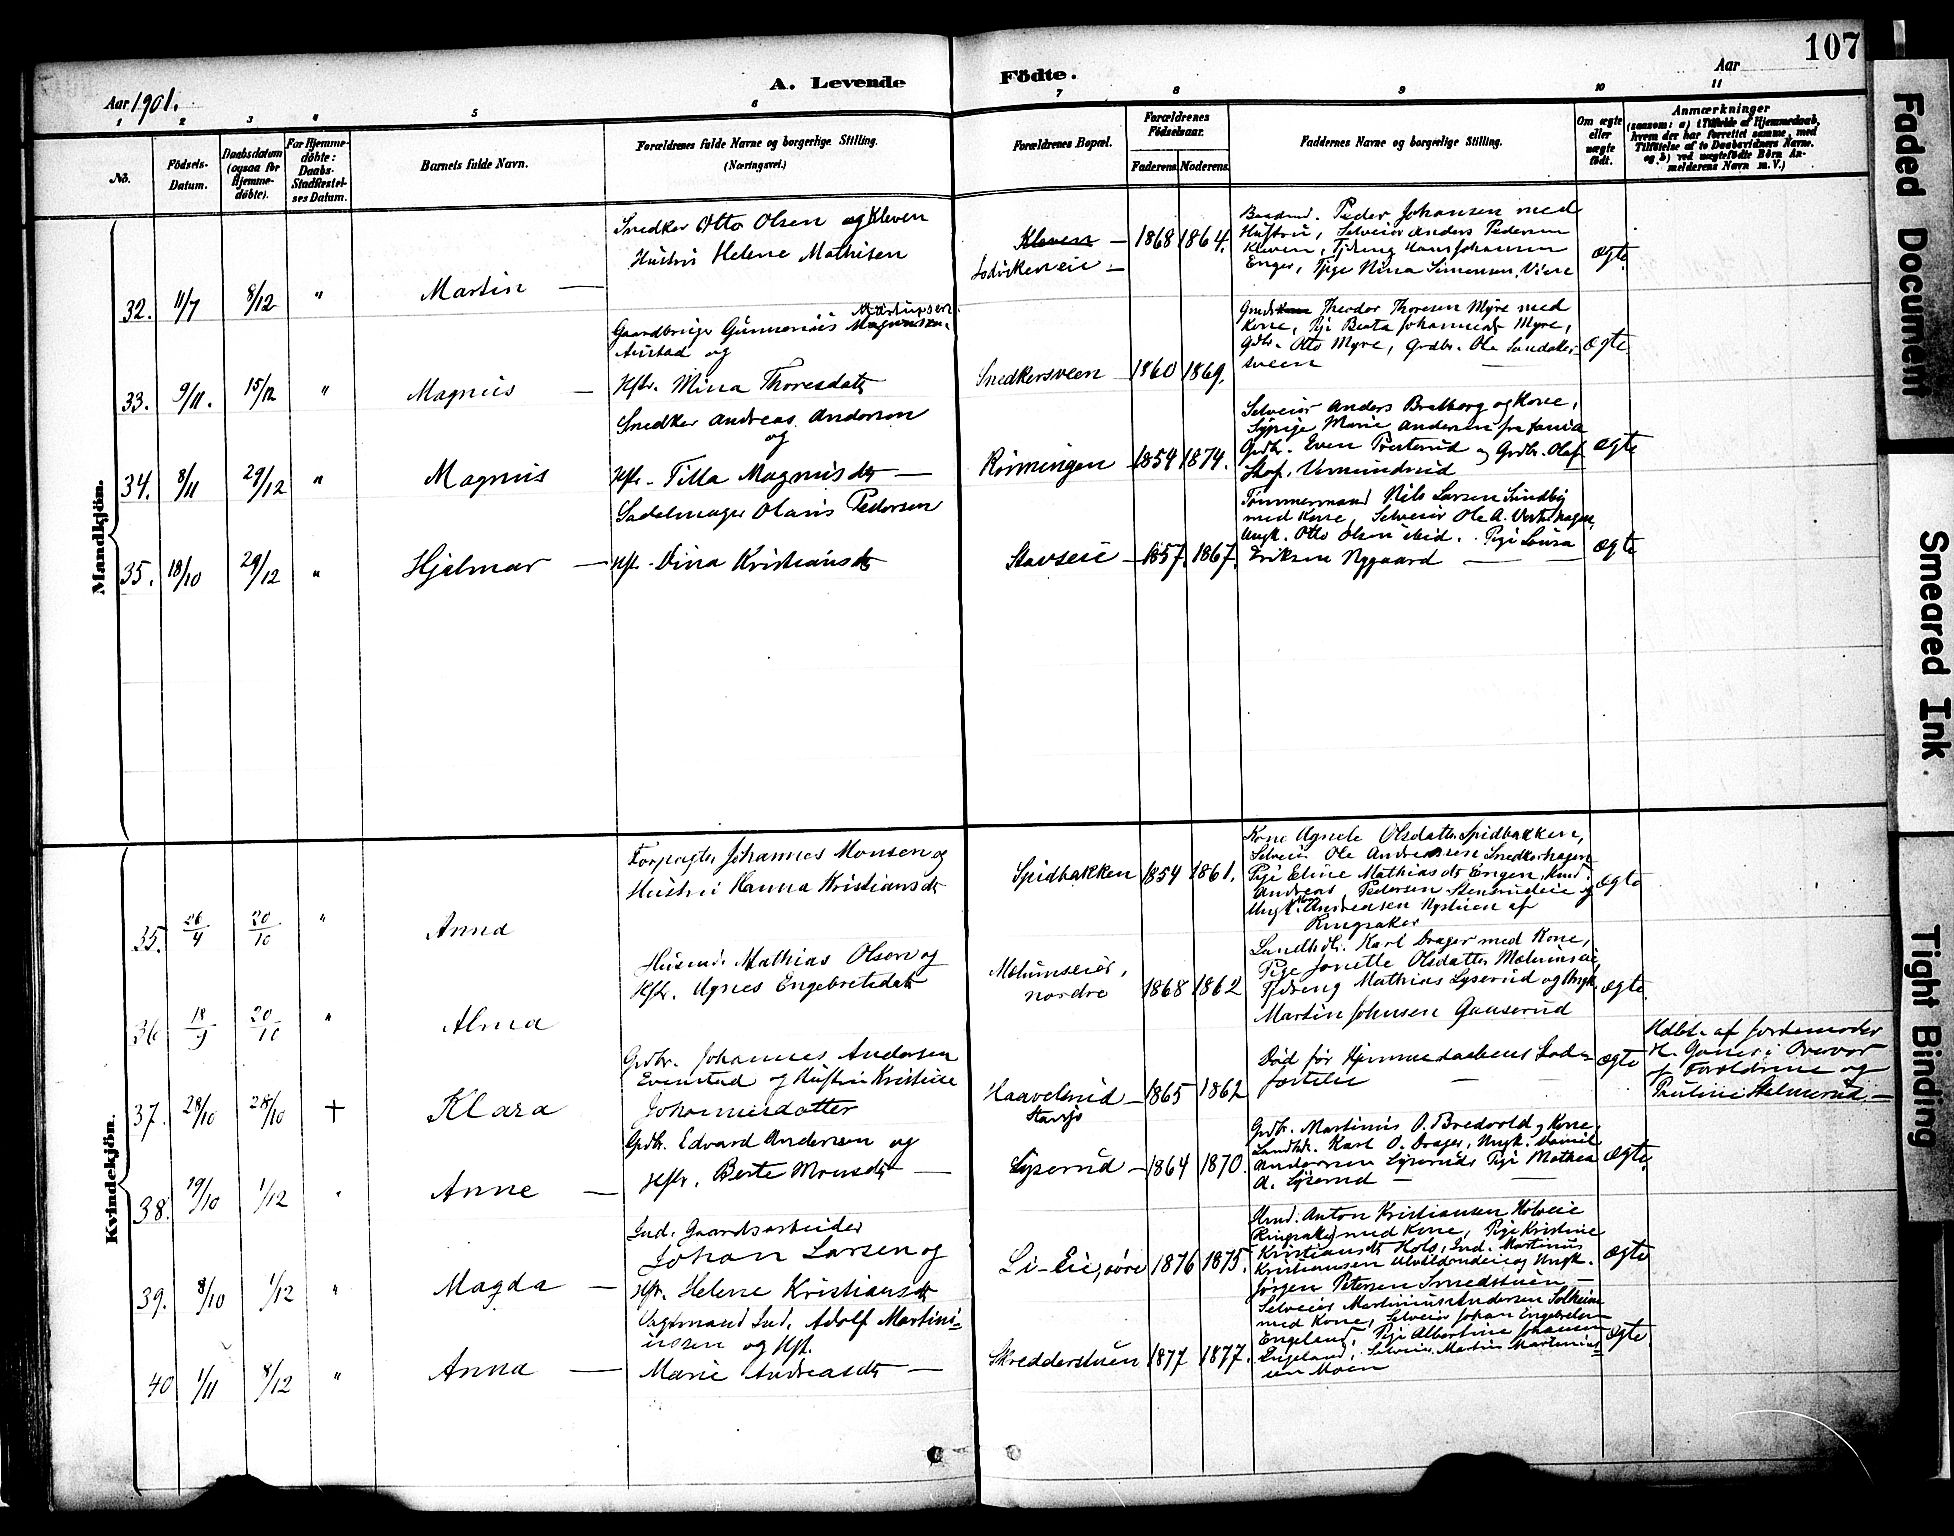 107
A. Levende Födte.
Aar 1901.
Aar
1 2 3 4 5 6 7 8 9 10 11
No.
Födsels-
Datum.
Daabsdatum
(ogsaa for
Hjemme-
döbte).
For Hjemme-
döbte:
Daabs-
Stadfæstel-
ses Datum.
Barnets fulde Navn.
Forældrenes fulde Navne og borgerlige Stilling.
(Næringsvei.)
Forældrenes Bopæl.
Forældrenes
Födselsaar.
Faderens
Moderens
Faddernes Navne og borgerlige Stilling.
Om ægte
eller
uægte
født.
Anmærkninger
(saasom: a) i Tilfælde af Hjemmedaab,
hvem der har forrettet samme, med
Tilføielse af to Daabsvidners Navne.
og b) ved uægtefödte Börn An-
melderens Navn m. V.)
Mandkjön.
32. 11/7 8/12 " Martin —
Snedker Otto Olsen og Kleven
Hustru Helene Mathisen
Kleven —
1868 1864.
Peder Johansen med
Hustru, Selveier Anders Pedersen
Kleven, Hans Johansen
Enger, Pige Nina Simensen, Vien
ægte
33. 9/11. 15/12 " Magnus —
Gaardbruger Gunnerius Magnussen
Austad og
Hstr. Mina Thoresdatr
Snedkersveen
1860 1869.
Theodor Thoresen Myre med
Kone, Pige Beata Johannesdr Myre,
Gdbr. Otto Myre, Grdbr. Ole Snedker-
sveen
ægte
34. 8/11 29/12 " Magnus
Snedker Andreas Andersen
og
Hstr. Tilla Magnusdtr —
1854 1874.
Selveier Anders Bratberg og Kone,
Sypige Marie Andersen fra
Grdbr. Even Presterud og Grdbr. Olaf
ægte
35. 18/10 29/12 " Hjalmar —
Sadelmager Olaus Pedersen
Hstr. Dina Kristiansdtr
Stavseie —
1857. 1867.
Tømmermand Nils Larsen Sundby
med Kone, Selveier Ole A.
Ungk. Otto Olsen ibid. Pige Lovisa
Eriksen Nygaard — —
ægte
Kvindekjön.
35. 26/9 20/10 " Anna
Forpagter Johannes Monsen og
Hustru Hanna Kristiansdtr
Spidbakken
1854 1861.
Kone Agnete Olsdatter Spidbakken,
Selveier Ole Andreassen Snedkerhagen
Pige Eline Mathiasdtr Engen,
Andreas Pedersen Stensrudeie og
Ungk. Andreasen Nystuen af
Ringsaker
ægte
36 18/9 20/10 " Alma
Husmd. Mathias Olsen og
Hstr. Agnes Engebretsdatr
nordre
1868 1862
Landhdl. Karl Drager med Kone,
Pige Jonette Olsdatter
Mathias Lyserud og Ungk.
Martin Johnsen Gauserud
ægte.
37. 28/10 28/10 † Klara
Grdbr. Johannes Andersen
Evenstad og Hustru Kristine
Johannesdatter
Haavelsrud —
Stavsjø
1865 1862
Død før Hjemmedaabens Stad-
fæstelse — —
ægte
Hdbt. af Jordemoder
H.
Forældrene og
Pauline —
38. 19/10 1/12 " Anne —
Grdbr. Edvard Andersen og
Hstr. Berte Monsdtr —
Lyserud —
1864 1870.
Grdbr. Martinius O. Bredvold og Kone,
Landhdl. Karl O. Drager, Ungk. Daniel
Andersen Lyserud, Pige Mathea
A. Lyserud — —
ægte
39. 8/10 1/12 " Magda —
Ind. Gaardsarbeider
Johan Larsen og
Hstr. Helene Kristiansdtr
Li-Eie, søre
1876 1875.
Anton Kristiansen Holseie
Ringsaker med Kone, Pige Kristine
Kristiansdtr Hols, Ind. Martinus
Kristiansen og Ungk.
Jørgen Petersen Smedstuen —
ægte
40 1/11 8/12 " Anna —
Ind. Adolf Martini-
ussen og Hst.
Marie Andreasdtr —
Skredderstuen
1877 1877.
Selveier Martinius Andersen Solheim
med Kone, Selveier Johan Engebretsen
Engeland, Pige Albertine Johansen
Engeland, Selveier Martin Martinius-
sen Moen
ægte
Faded Document
Smeared Ink
Tight Binding